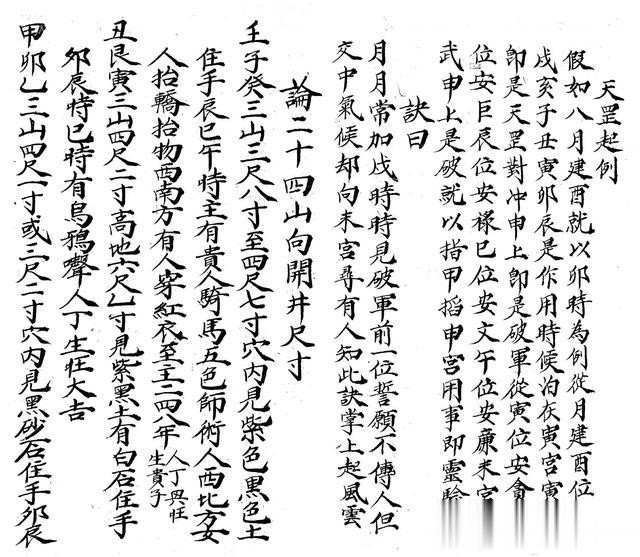 天罡起例
假如八月建酉就以卯時為例從月建酉位
戍亥子丑寅卯辰是作用時候泊在寅宮寅
卽是天罡對冲申上卽是破軍從寅位安貪
位安巨辰位安祿巳位安文午位安廉未宮
武申上是破就以指甲搯申宮用事即靈驗
訣曰
月月常加戍時時見破軍前一位誓願不傳人但
交中氣候却向未宮尋有人知此訣掌上起風雲
論二十四山向開井尺寸
壬子癸三山三尺八寸至四尺七寸穴內見紫色黑色土
住手辰巳午時主有貴人騎馬五色師術人西北方女
人抬轎抬物西南方有人穿紅衣至主二四八年人丁興旺生貴子
丑艮寅三山四尺二寸高地六尺乙寸見紫黑土有白石住手
卯辰時巳時有烏鴉聲人丁生旺大吉
甲卯乙三山四尺一寸或三尺二寸穴內見黑砂石住手卯辰